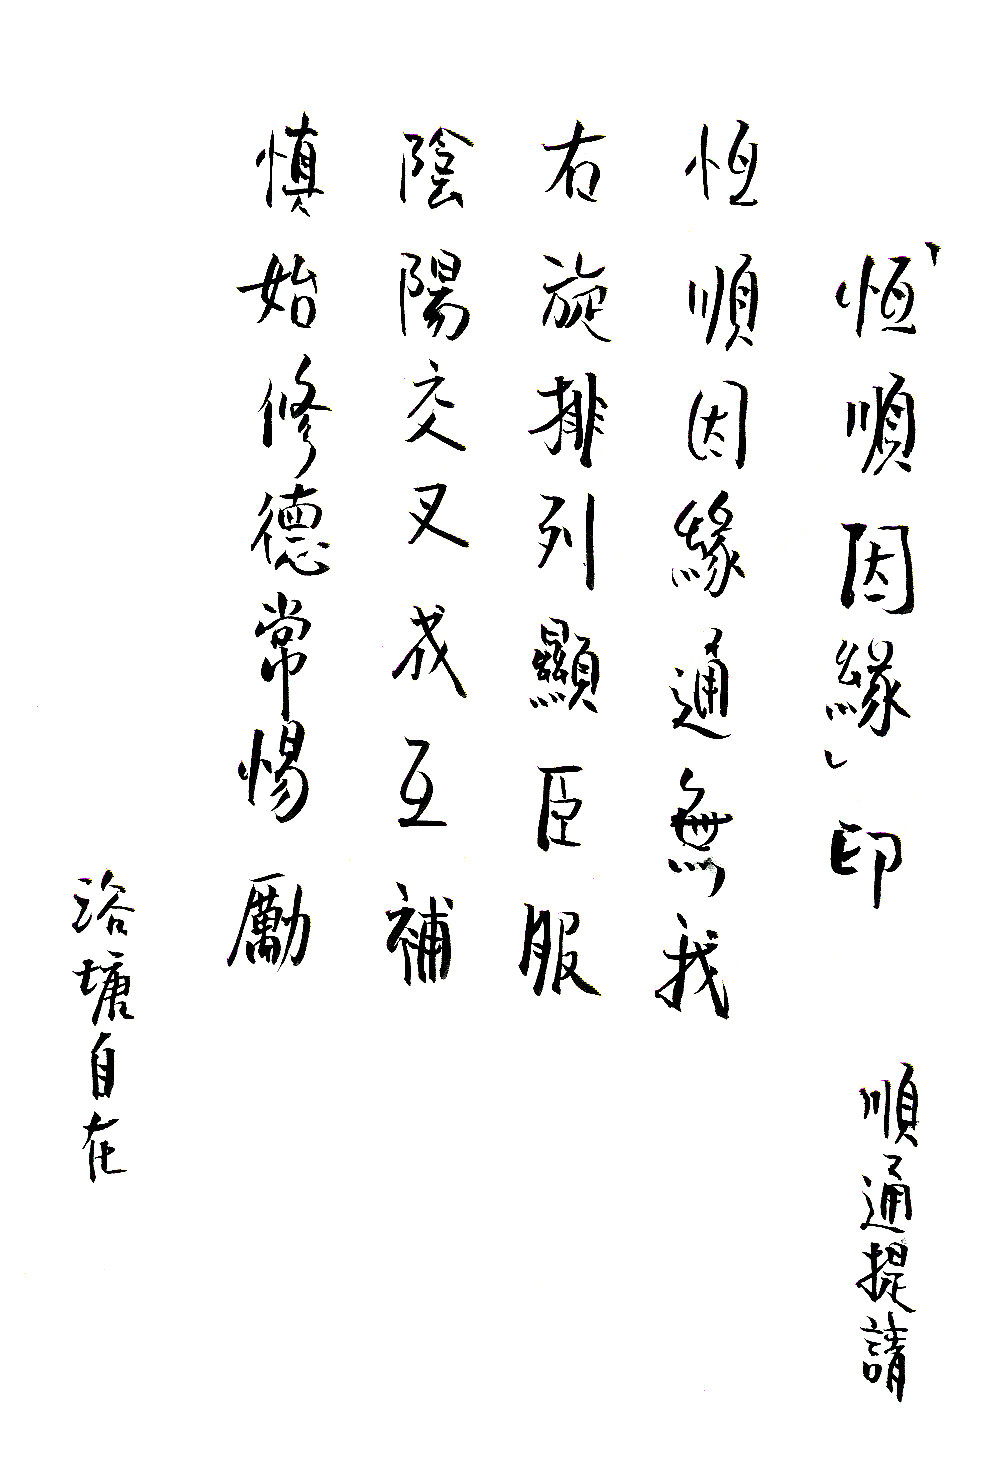 「恒順因緣」印 順通提請
恒順因緣通無我
右旋排列顯臣服
陰陽交叉成互補
慎始修德常惕勵
浴塘自在